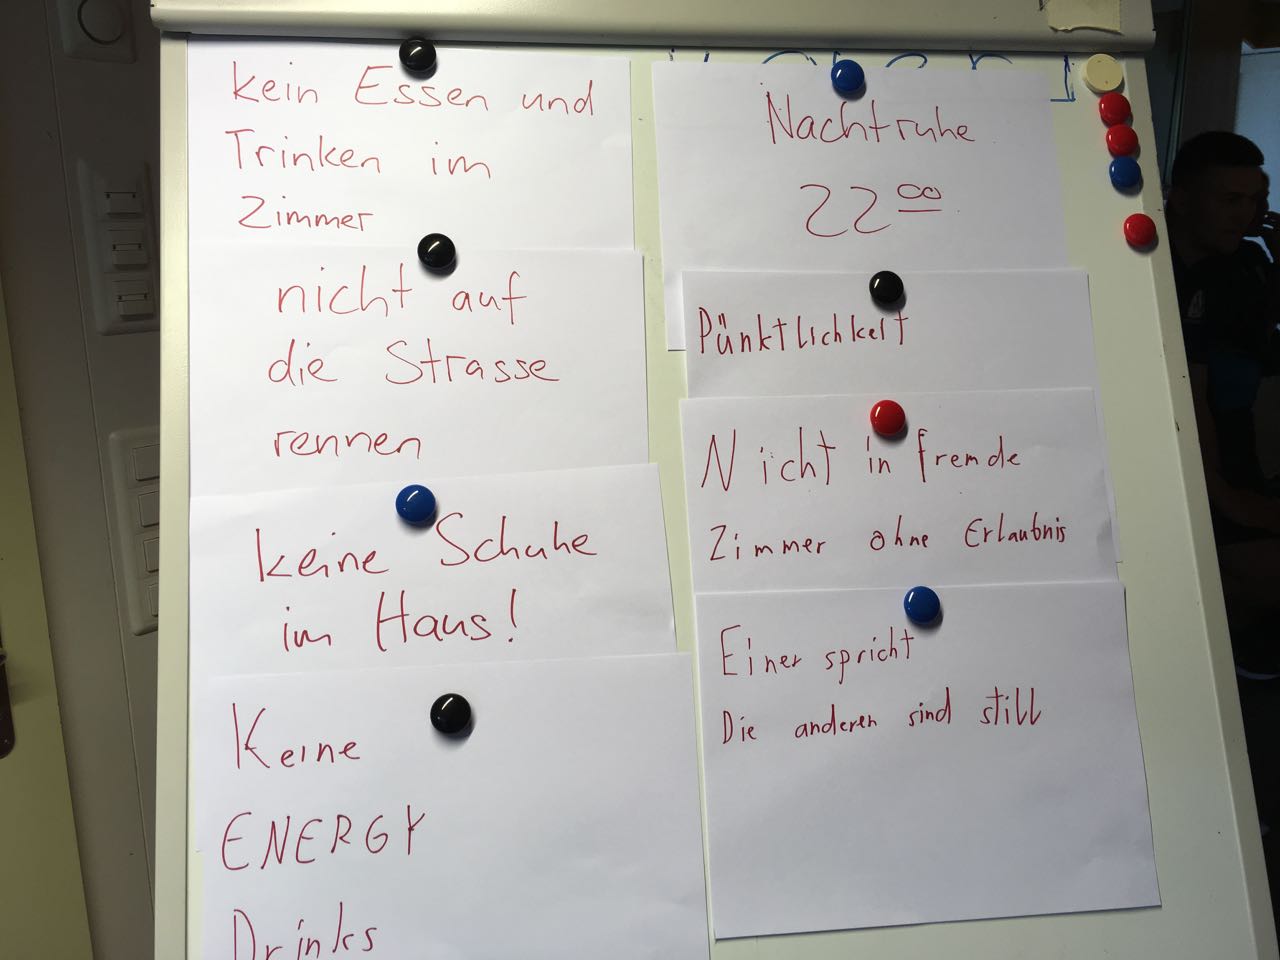 kein Essen und
Trinken im
Zimmer
nicht auf
die Strasse
rennen
keine Schuhe
im Haus!
Keine
ENERGY
Drinks
Nachtruhe
22 00
Pünktlichkeit
Nicht in fremde
Zimmer ohne Erlaubnis
Einer spricht
Die anderen sind still